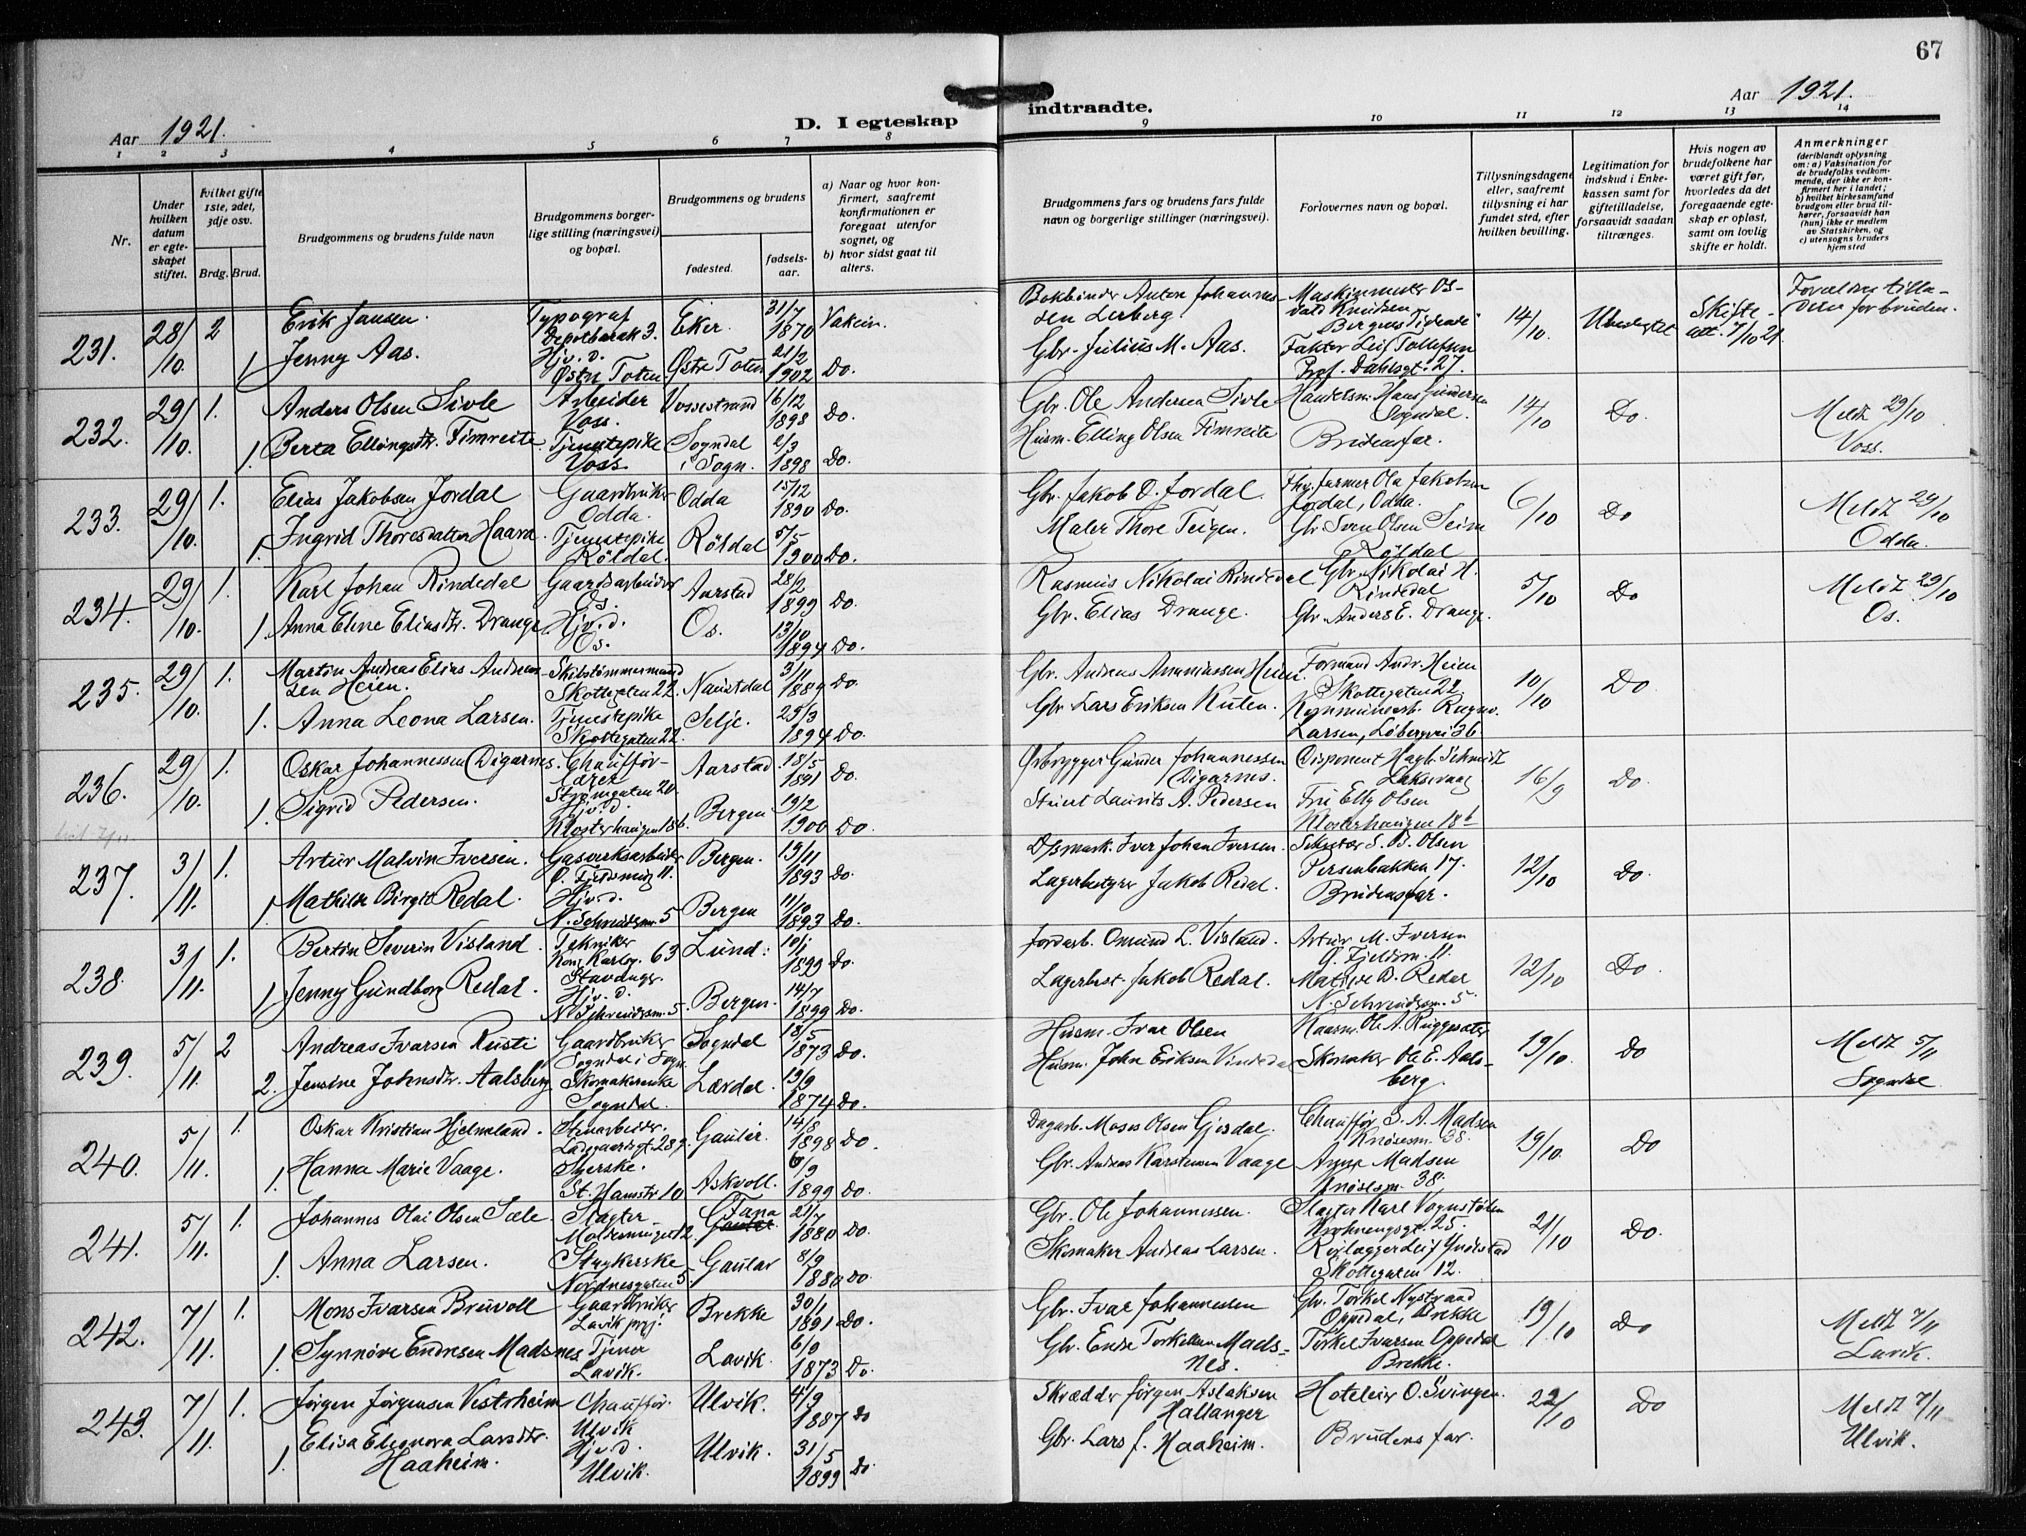 67
Aar 1921.
D. I egteskap indtraadte.
Aar 1921.
1 2 3 4 5 6 7 8 9 10 11 12 13 14
Nr.
Under hvilken datum er egteskapet stiftet.
Hvilket gifte 1ste, 2det, 3dje osv.
Brdg. Brud.
Brudgommens og brudens fulde navn
Brudgommens borgerlige stilling (næringsvei) og bopæl.
Brudgommens og brudens
fødested.
fødselsaar.
a) Naar og hvor konfirmert, saafremt konfirmationen er foregaat utenfor sognet, og
b) hvor sidst gaat til alters.
Brudgommens fars og brudens fars fulde navn og borgerlige stillinger (næringsvei).
Forlovernes navn og bopæl.
Tillysningsdagene eller, saafremt tillysning ei har fundet sted, efter hvilken bevilling.
Legitimation for indskud i Enkekassen samt for giftetilladelse, forsaavidt saadan tiltrænges.
Hvis nogen av brudefolkene har været gift før, hvorledes da det foregaaende egteskap er opløst, samt om lovlig skifte er holdt.
Anmerkninger
(deriblandt oplysning om: a) Vaksination for de brudefolks vedkommende, der ikke er konfirmert her i landet; b) hvilket kirkesamfund brudgom eller brud tilhører, forsaavidt han (hun) ikke er medlem av Statskirken, og c) utensogns bruders hjemsted
231. 28/10. 2 Erik Jansen. Typograf Depotbarak 3. Eker. 31/7 1870 Vaksin. Bokbinder Anton Johannessen Lerberg Maskinmester Osvald Knudsen Bergens Tidende 14/10. Ubeskyttet Skifteatt. 7/10 21 Foreldres tilladelse for bruden.
1 Jenny Aas. Hj.v.d. Østre Toten Østre Toten 21/2 1902 Do. Gbr. Julius M. Aas. Faktor Leif Tollefsen Prof. Dahlsgt. 27.
232. 29/10. 1. Anders Olsen Sivle Arbeider Voss. Vossestrand 16/12 1898 Do. Gbr. Ole Andersen Sivle Handelsm. Hans Gundersen Sogndal. 14/10 Do. Meldt 29/10 Voss.
1. Berta Ellingsdtr. Fimreite Tjenestepike Voss. Sogndal i Sogn. 2/3 1898 Do. Husm. Elling Olsen Fimreite Brudens far.
233. 29/10. 1. Elias Jakobsen Jordal Gaardbruker Odda. Odda 15/12 1890 Do. Gbr. Jakob O. Jordal. Fhv. farmer Ola Jakobsen Jordal, Odda. 6/10 Do Meldt 29/10 Odda.
1. Ingrid Thoresdatter Haara Tjenestepike Röldal. Röldal 5/5 1900 Do. Maler Thore Teigen. Gbr. Sven Olsen Seim Røldal
234. 29/10. 1. Karl Johan Rindedal Gaardsarbeider Os. Aarstad 28/2 1899 Do. Rasmus Nikolai Rindedal Gbr. Nikolai H. Rindedal 5/10 Do Meldt 29/10 Os.
1. Anna Eline Eliasdtr. Drange Hj.v.d. Os. Os. 13/10 1894 Do. Gbr. Elias Drange. Gbr. Anders E. Drange.
235. 29/10. 1. Martin Andreas Elias Andreassen Heien. Skibstömmermand Skottegaten 22. Naustdal 3/11 1889 Do. Gbr. Andreas Ananiassen Heien. Formand Andr. Heien Skottegaten 22. 10/10 Do.
1. Anna Leona Larsen. Tjenestepike Skottegaten 22. Selje. 23/3 1894 Do. Gbr. Lars Eriksen Kulen. Kommunearb. Ragnv. Larsen, Løbergvei 36
236. 29/10. 1. Oskar Johannessen Digernes. Chaufförlærer Strømgaten 20 Aarstad 18/5 1891 Do. Ølbrygger Gunder Johannessen Digernes. Disponent Hagb. Schmidt Laksevaag 16/9 Do.
1. Sigrid Pedersen. Hj.v.d. Klosterhaugen 18b. Bergen 19/2 1900 Do. Stuert Laurits A. Pedersen Fru Elly Olsen Klosterhaugen 18b
237. 3/11. 1. Artur Malvin Iversen. Gasverksarbeider Ø. Fjeldsmug 11. Bergen. 13/11 1893 Do. Iver Johan Iversen. S. B. Olsen Persenbakken 17. 12/10 Do.
1 Mathilde Birgit Redal. Hj.v.d. N. Schreudersm. 5 Bergen 11/10 1893 Do. Lagerbestyrer Jakob Redal. Brudens far.
238. 3/11. 1. Bertin Severin Visland Tekniker Kong Karlsg. 63 Stavanger. Lund. 10/1 1899 Do. Jordarb. Omund L. Visland. Artur M. Iversen Ø. Fjeldsm. 11. 12/10 Do.
1 Jenny Gundborg Redal. Hj.v.d. N. Schreudersm. 5. Bergen. 14/7 1899 Do. Lagerbest. Jakob Redal. Matilde B. Redal N. Schreudersm. 5
239. 5/11. 2 Andreas Ivarsen Rusti Gaardbruker Sogndal i Sogn. Sogndal 18/5 1873 Do. Husm. Ivar Olsen Ole A. Ruggesæter 19/10. Do Meldt 5/11 Sogndal
2. Jensine Johnsdtr. Aalsberg Skomakerenke Sogndal. Lærdal. 19/9 1874 Do. Husm. John Eriksen Vindedal Skomaker Ole E. Aalsberg.
240. 5/11. 1. Oskar Kristian Hjelmeland. Stenarbeider. Ladegaardsgt. 28 Gaular. 14/8 1898 Do. Dagarb. Moses Olsen Gjesdal. Chauffør S. A. Madsen Knøsesm. 38. 19/10. Do
1. Hanna Marie Vaage. Syerske. St. Hansstr. 10 Askvoll. 6/9 1899 Do. Gbr. Andreas Karstensen Vaage Anna Madsen Knøsesm. 38.
241. 5/11. 1. Johannes Olai Olsen Sæle. Slagter Fana Gaular. 21/7 1880 Do. Gbr. Ole Johannessen. Slagter Karl Vognstølen Krohnengsgt. 25. 21/10 Do.
1. Anna Larsen. Strykerske Nordnesgaten 5. Gaular 8/9 1880 Do. Skomaker Andreas Larsen. Rørlægger Leif Skottegaten 12.
242. 7/11. 1. Mons Ivarsen Bruvoll Gaardbruker Lavik prgj. Brekke 30/1 1891 Do. Gbr. Ivar Johannessen Gbr. Torkel Nystrand Oppedal, Brekke 19/10 Do Meldt 7/11 Lavik.
1. Synnöve Endresen Madsnes Tjener Lavik. Lavik. 6/9 1873 Do. Gbr. Endre Torkelsen Madsnes. Torkel Ivarsen Oppedal Brekke.
243. 7/11. 1. Jørgen Jørgensen Vestrheim Chauffør. Ulvik Ulvik. 4/9 1887 Do Skrædder Jørgen Aslaksen Hallanger Hoteleier O. Svingen. 22/10 Do Meldt 7/11 Ulvik.
1. Elisa Eleonora Larsdtr. Haaheim. Hj.v.d. Ulvik. Ulvik. 31/5 1899 Do Gbr. Lars J. Haaheim. Brudens far.